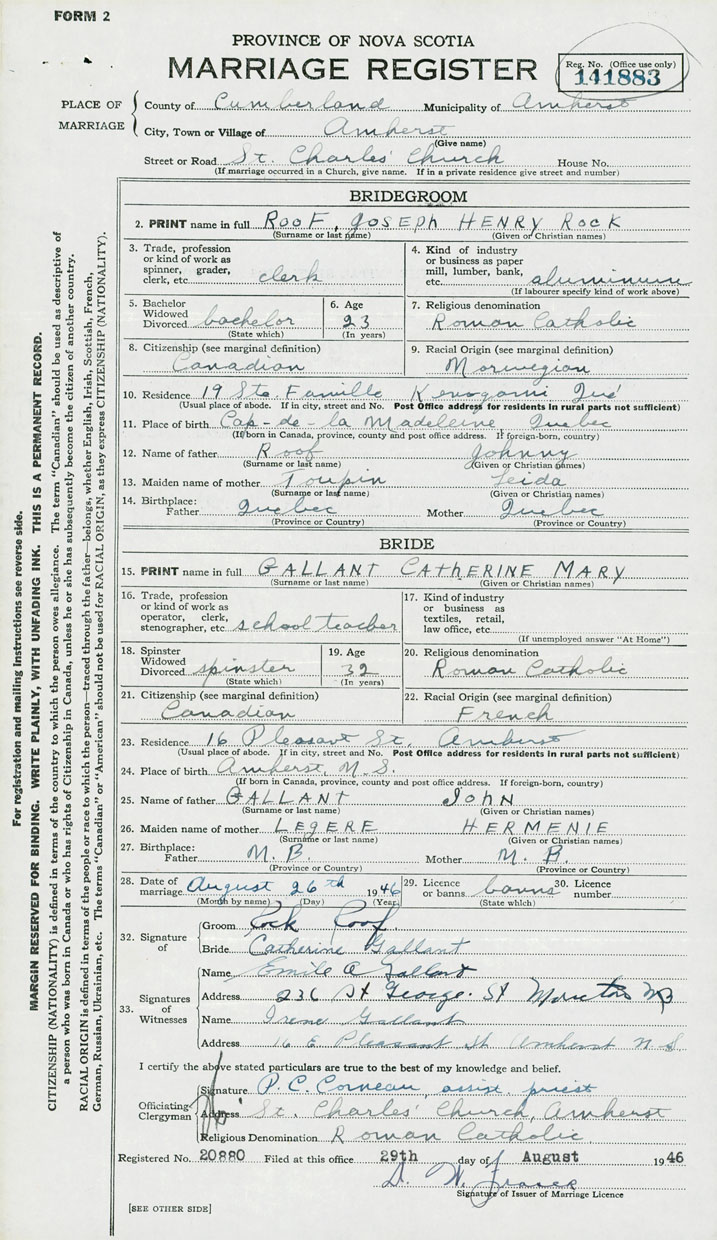 FORM 2
PROVINCE OF NOVA SCOTIA
MARRIAGE REGISTER
Reg. No. (Office use only)
141883
PLACE OF MARRIAGE
County of Cumberland Municipality of Amherst
City, Town or Village of Amherst
(Give name)
Street or Road St. Charles' Church House No.
(If marriage occurred in a Church, give name. If in a private residence give street and number)
BRIDEGROOM
2. PRINT name in full ROOF, JOSEPH HENRY ROCK
(Surname or last name) (Given or Christian names)
3. Trade, profession or kind of work as spinner, grader, clerk, etc. clerk
4. Kind of industry or business as paper mill, lumber, bank, etc. aluminum
(If labourer specify kind of work above)
5. Bachelor Widowed Divorced bachelor
(State which)
6. Age 23
(In years)
7. Religious denomination
Roman Catholic
8. Citizenship (see marginal definition)
Canadian
9. Racial Origin (see marginal definition)
Norwegian
10. Residence 19 Ste. Famille Kenogami Qué
(Usual place of abode. If in city, street and No. Post Office address for residents in rural parts not sufficient)
11. Place of birth Cap-de-la Madeleine Quebec
(If born in Canada, province, county and post office address. If foreign-born, country)
12. Name of father Roof Johnny
(Surname or last name) (Given or Christian names)
13. Maiden name of mother Toupin Leida
(Surname or last name) (Given or Christian names)
14. Birthplace: Father Quebec Mother Quebec
(Province or Country) (Province or Country)
BRIDE
15. PRINT name in full GALLANT CATHERINE MARY
(Surname or last name) (Given or Christian names)
16. Trade, profession or kind of work as operator, clerk, stenographer, etc. school teacher
17. Kind of industry or business as textiles, retail, law office, etc.
(If unemployed answer "At Home")
18. Spinster Widowed Divorced spinster
(State which)
19. Age 32
(In years)
20. Religious denomination
Roman Catholic
21. Citizenship (see marginal definition)
Canadian
22. Racial Origin (see marginal definition)
French
23. Residence 16 Pleasant St. Amherst
(Usual place of abode. If in city, street and No. Post Office address for residents in rural parts not sufficient)
24. Place of birth Amherst N.S.
(If born in Canada, province, county and post office address. If foreign-born, country)
25. Name of father GALLANT JOHN
(Surname or last name) (Given or Christian names)
26. Maiden name of mother LEGERE HERMENIE
(Surname or last name) (Given or Christian names)
27. Birthplace: Father N. B. Mother N. B.
(Province or Country) (Province or Country)
28. Date of marriage August 26th 1946
(Month by name) (Day) (Year)
29. Licence or banns banns
(State which)
30. Licence number
32. Signature of
Groom Rock Roof
Bride Catherine Gallant
33. Signatures of Witnesses
Name Emile A Gallant
Address 236 St George St Moncton NB
Name Irene Gallant
Address 16 E Pleasant St Amherst N-S.
I certify the above stated particulars are true to the best of my knowledge and belief.
Officiating Clergyman
Signature P. C. Corneau, assist. priest
Address St. Charles' Church, Amherst
Religious Denomination Roman Catholic
Registered No. 20880 Filed at this office 29th day of August 1946
Signature of Issuer of Marriage Licence
[SEE OTHER SIDE]
For registration and mailing instructions see reverse side.
MARGIN RESERVED FOR BINDING. WRITE PLAINLY, WITH UNFADING INK. THIS IS A PERMANENT RECORD.
CITIZENSHIP (NATIONALITY) is defined in terms of the country to which the person owes allegiance. The term "Canadian" should be used as descriptive of
a person who was born in Canada or who has rights of Citizenship in Canada, unless he or she has subsequently become the citizen of another country.
RACIAL ORIGIN is defined in terms of the people or race to which the person—traced through the father—belongs, whether English, Irish, Scottish, French,
German, Russian, Ukrainian, etc. The terms "Canadian" or "American" should not be used for RACIAL ORIGIN, as they express CITIZENSHIP (NATIONALITY).